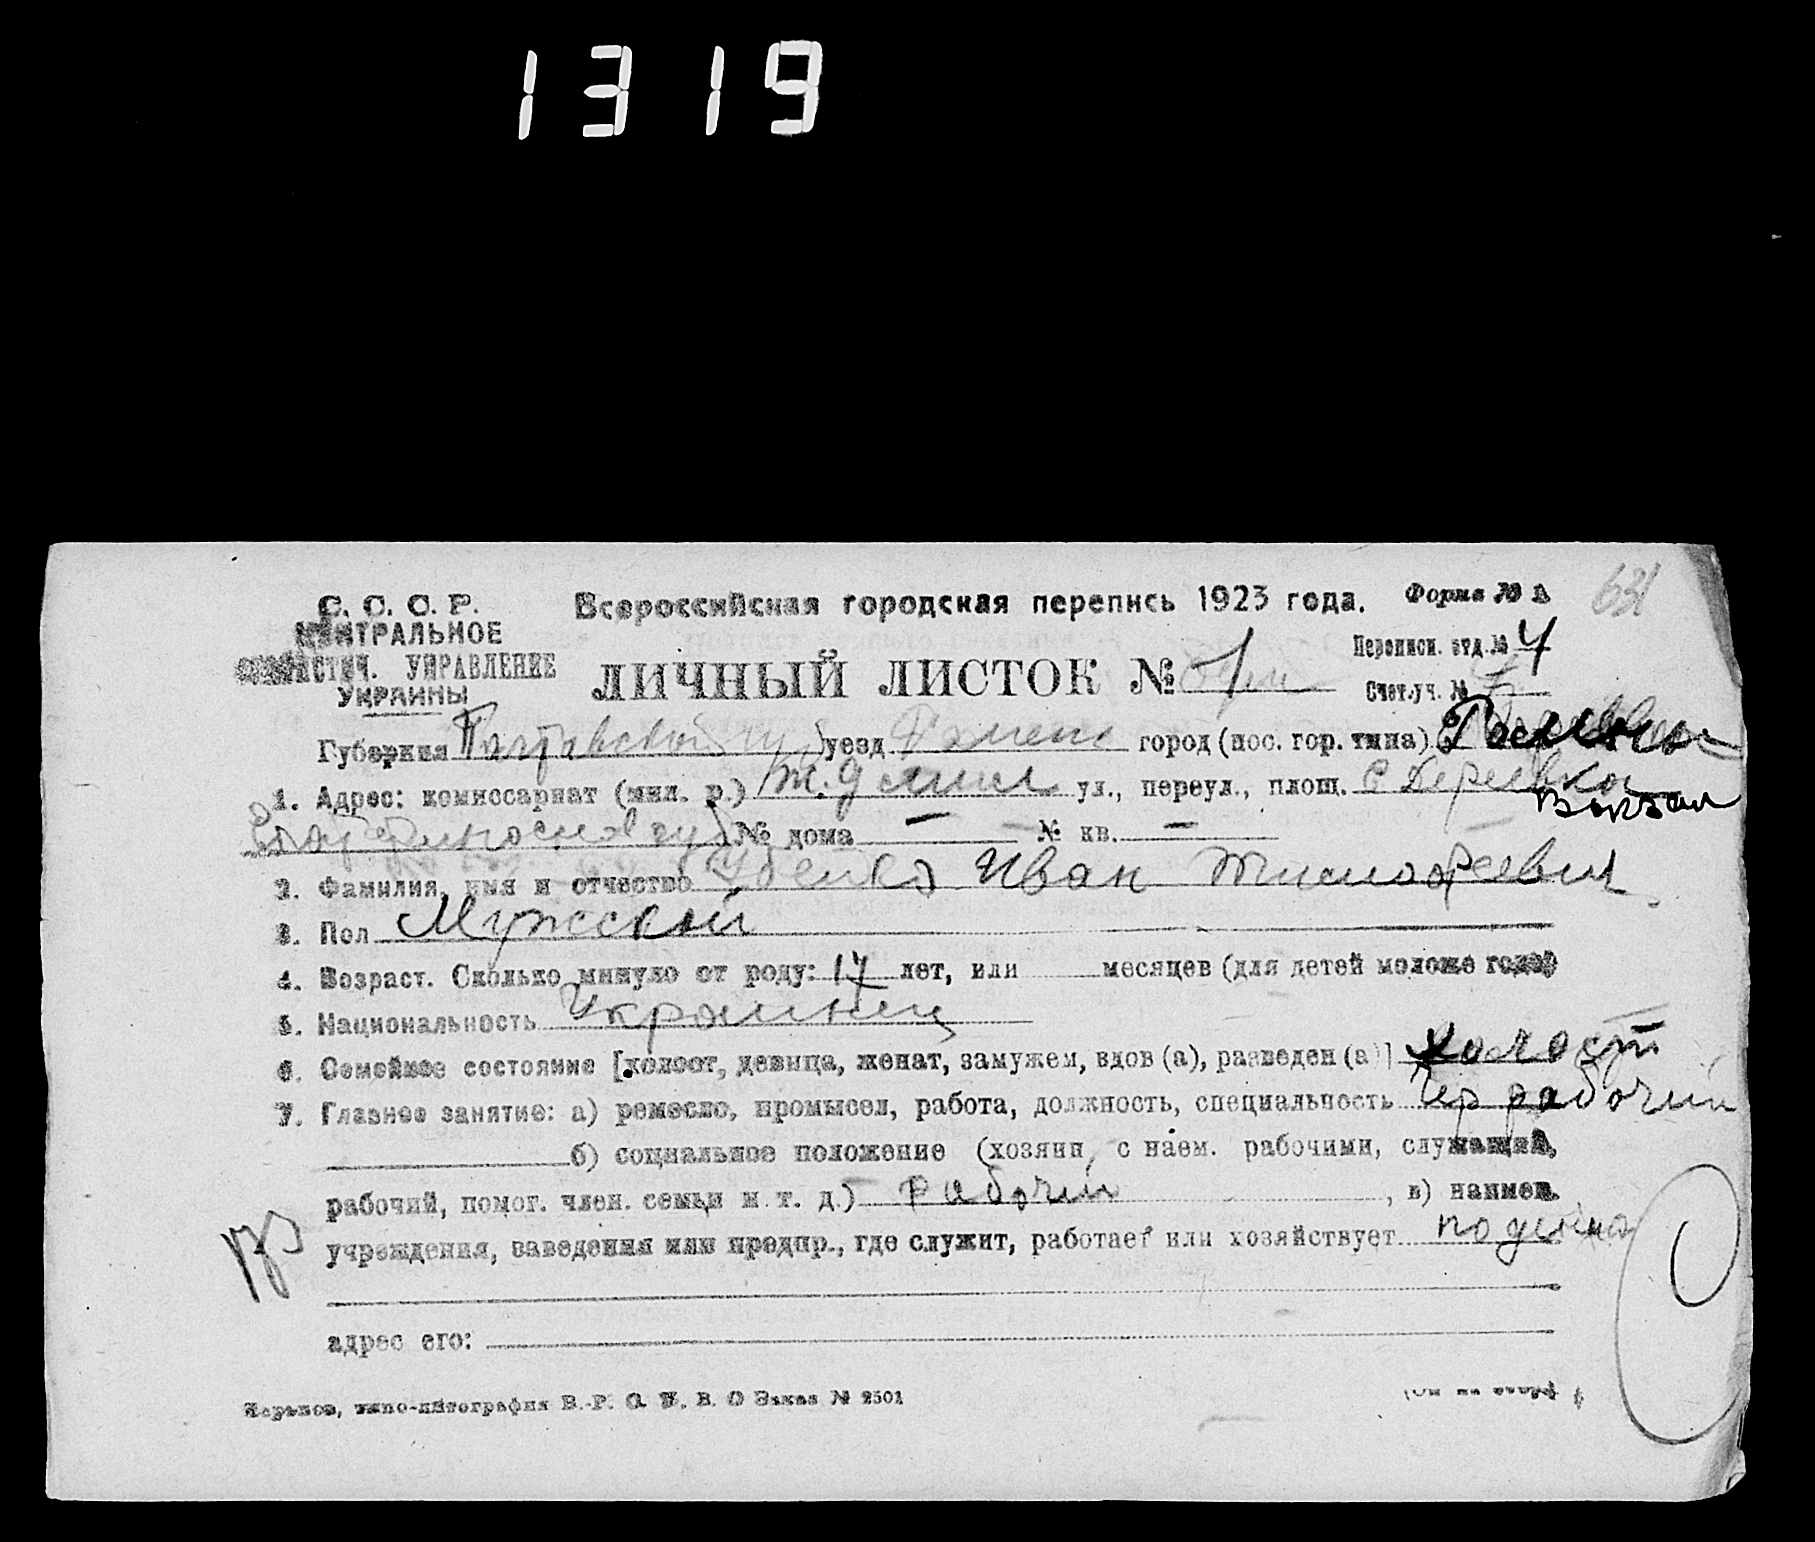 1319
С. С. С. Р.
Всероссийская городская перепись 1923 года.
Форма № А
631
ЦЕНТРАЛЬНОЕ
СТАТИСТИЧ. УПРАВЛЕНИЕ
УКРАИНЫ
ЛИЧНЫЙ ЛИСТОК № 1
Переписн. отд. № 4
Счетч. уч. №
Губерния Полтавской уезд Ромен город (пос. гор. типа) Ромны
1. Адрес: комиссариат (мил. р.) ул., переул., площ.
Вокзал
№ дома — № кв. —
2. Фамилия, имя и отчество Иван Тимофеевич
3. Пол Мужской
4. Возраст. Сколько минуло от роду: 17 лет, или месяцев (для детей моложе года)
5. Национальность Украинец
6. Семейное состояние [холост, девица, женат, замужем, вдов (а), разведен (а)] холост
7. Главное занятие: а) ремесло, промысел, работа, должность, специальность Чер рабочий
б) социальное положение (хозяин, с наем. рабочими, служащий,
рабочий, помог. член. семьи и т. д.) рабочий, в) наимен.
учреждения, заведения или предпр., где служит, работает или хозяйствует поденно
адрес его:
Харьков, типо-литография В.-Р. С. У. В. О Заказ № 2501